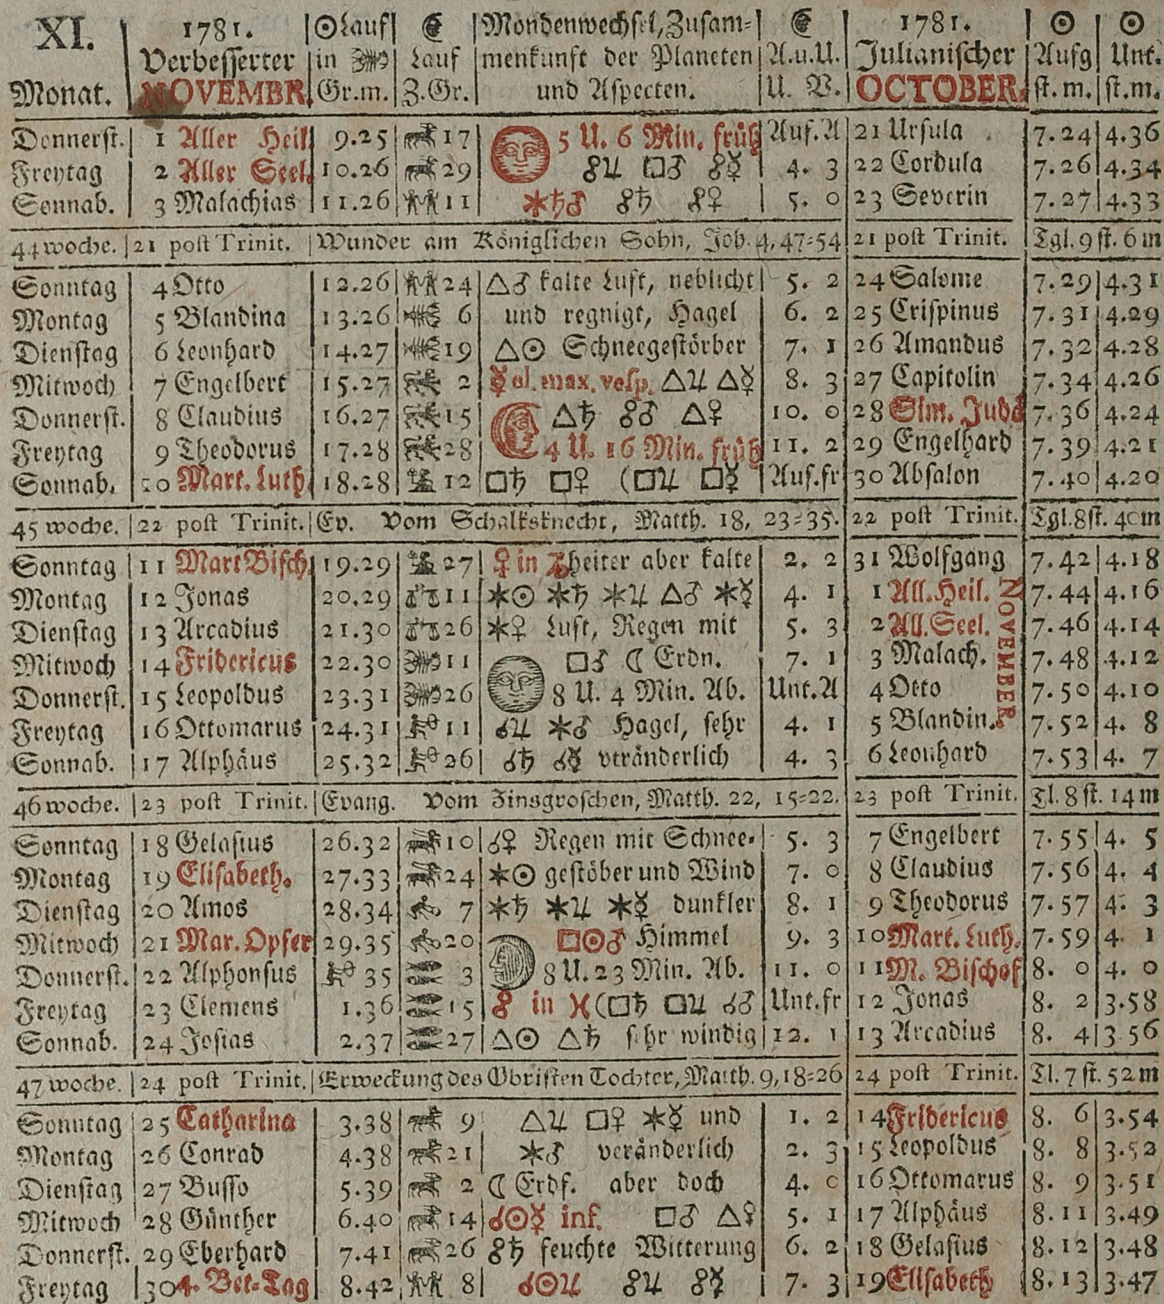 XI. 1781. ☉Lauf ☾ Mondenwechsel, Zusam= ☾ 1781. ☉ ☉
Verbesserter in ♏ Lauf menkunft der Planeten A.u.U. Julianischer Aufg Unt.
Monat. NOVEMBR. Gr.m. Z.Gr. und Aspecten. U. V. OCTOBER. st.m. st.m.
Donnerst. 1 Aller Heil. 9.25 ♉ 17 5 U. 6 Min. früh Auf.A 21 Ursula 7.24 4.36
Freytag 2 Aller Seel. 10.26 ♉ 29 ☍♃ □♂ ☍☿ 4. 3 22 Cordula 7.26 4.34
Sonnab. 3 Malachias 11.26 ♊ 11 ✶♄♂ ☍♄ ☍♀ 5. 0 23 Severin 7.27 4.33
44 woche. 21 post Trinit. Wunder am Königlichen Sohn, Joh. 4, 47=54 21 post Trinit. Tgl. 9 st. 6 m
Sonntag 4 Otto 12.26 ♊ 24 △♂ kalte Luft, neblicht 5. 2 24 Salome 7.29 4.31
Montag 5 Blandina 13.26 ♋ 6 und regnigt, Hagel 6. 2 25 Crispinus 7.31 4.29
Dienstag 6 Leonhard 14.27 ♋ 19 △☉ Schneegestörber 7. 1 26 Amandus 7.32 4.28
Mitwoch 7 Engelbert 15.27 ♌ 2 ☿ el. max. vesp. △♃ △☿ 8. 3 27 Capitolin 7.34 4.26
Donnerst. 8 Claudius 16.27 ♌ 15 △♄ ☍♂ △♀ 10. 0 28 Sim. Judä 7.36 4.24
Freytag 9 Theodorus 17.28 ♌ 28 4 U. 16 Min. früh 11. 2 29 Engelhard 7.39 4.21
Sonnab. 10 Mart. Luth. 18.28 ♍ 12 □♄ □♀ (□♃ □☿ Auf.fr 30 Absalon 7.40 4.20
45 woche. 22 post Trinit. Ev. Vom Schalksknecht, Matth. 18, 23=35. 22 post Trinit. Tgl. 8 st. 40 m
Sonntag 11 Mart Bisch. 19.29 ♍ 27 ♀ in ♑ heiter aber kalte 2. 2 31 Wolfgang 7.42 4.18
Montag 12 Jonas 20.29 ♎ 11 ✶☉ ✶♄ ✶♃ △♂ ✶☿ 4. 1 1 All. Heil. NOVEMBER 7.44 4.16
Dienstag 13 Arcadius 21.30 ♎ 26 ✶♀ Luft, Regen mit 5. 3 2 All. Seel. 7.46 4.14
Mitwoch 14 Fridericus 22.30 ♏ 11 □♂ ☾ Erdn. 7. 1 3 Malach. 7.48 4.12
Donnerst. 15 Leopoldus 23.31 ♏ 26 8 U. 4 Min. Ab. Unt.A 4 Otto 7.50 4.10
Freytag 16 Ottomarus 24.31 ♐ 11 ☌♃ ✶♂ Hagel, sehr 4. 1 5 Blandin. 7.52 4. 8
Sonnab. 17 Alphäus 25.32 ♐ 26 ☌♄ ☌☿ veränderlich 4. 3 6 Leonhard 7.53 4. 7
46 woche. 23 post Trinit. Evang. Vom Zinsgroschen, Matth. 22, 15=22. 23 post Trinit. Tl. 8 st. 14 m
Sonntag 18 Gelasius 26.32 ♑ 10 ☌♀ Regen mit Schnee= 5. 3 7 Engelbert 7.55 4. 5
Montag 19 Elisabeth. 27.33 ♑ 24 ✶☉ gestöber und Wind 7. 0 8 Claudius 7.56 4. 4
Dienstag 20 Amos 28.34 ♒ 7 ✶♄ ✶♃ ✶☿ dunkler 8. 1 9 Theodorus 7.57 4. 3
Mitwoch 21 Mar. Opfer 29.35 ♒ 20 □☉♂ Himmel 9. 3 10 Mart. Luth. 7.59 4. 1
Donnerst. 22 Alphonsus ♐ 35 ♓ 3 8 U. 23 Min. Ab. 11. 0 11 M. Bischof 8. 0 4. 0
Freytag 23 Clemens 1.36 ♓ 15 in ♓ (□♄ □♃ ☌♂ Unt.fr 12 Jonas 8. 2 3.58
Sonnab. 24 Josias 2.37 ♓ 27 △☉ △♄ sehr windig 12. 1 13 Arcadius 8. 4 3.56
47 woche. 24 post Trinit. Erweckung des Obristen Tochter, Matth. 9, 18=26 24 post Trinit. Tl. 7 st. 52 m
Sonntag 25 Catharina 3.38 ♈ 9 △♃ □♀ ✶☿ und 1. 2 14 Fridericus 8. 6 3.54
Montag 26 Conrad 4.38 ♈ 21 ✶♂ veränderlich 2. 3 15 Leopoldus 8. 8 3.52
Dienstag 27 Busso 5.39 ♉ 2 ☾ Erdf. aber doch 4. 0 16 Ottomarus 8. 9 3.51
Mitwoch 28 Günther 6.40 ♉ 14 ☌☉☿ inf. □♂ △♀ 5. 1 17 Alphäus 8.11 3.49
Donnerst. 29 Eberhard 7.41 ♉ 26 ☍♄ feuchte Witterung 6. 2 18 Gelasius 8.12 3.48
Freytag 30 4. Bet=Tag 8.42 ♊ 8 ☌☉♃ ☍♃ ☍☿ 7. 3 19 Elisabeth 8.13 3.47